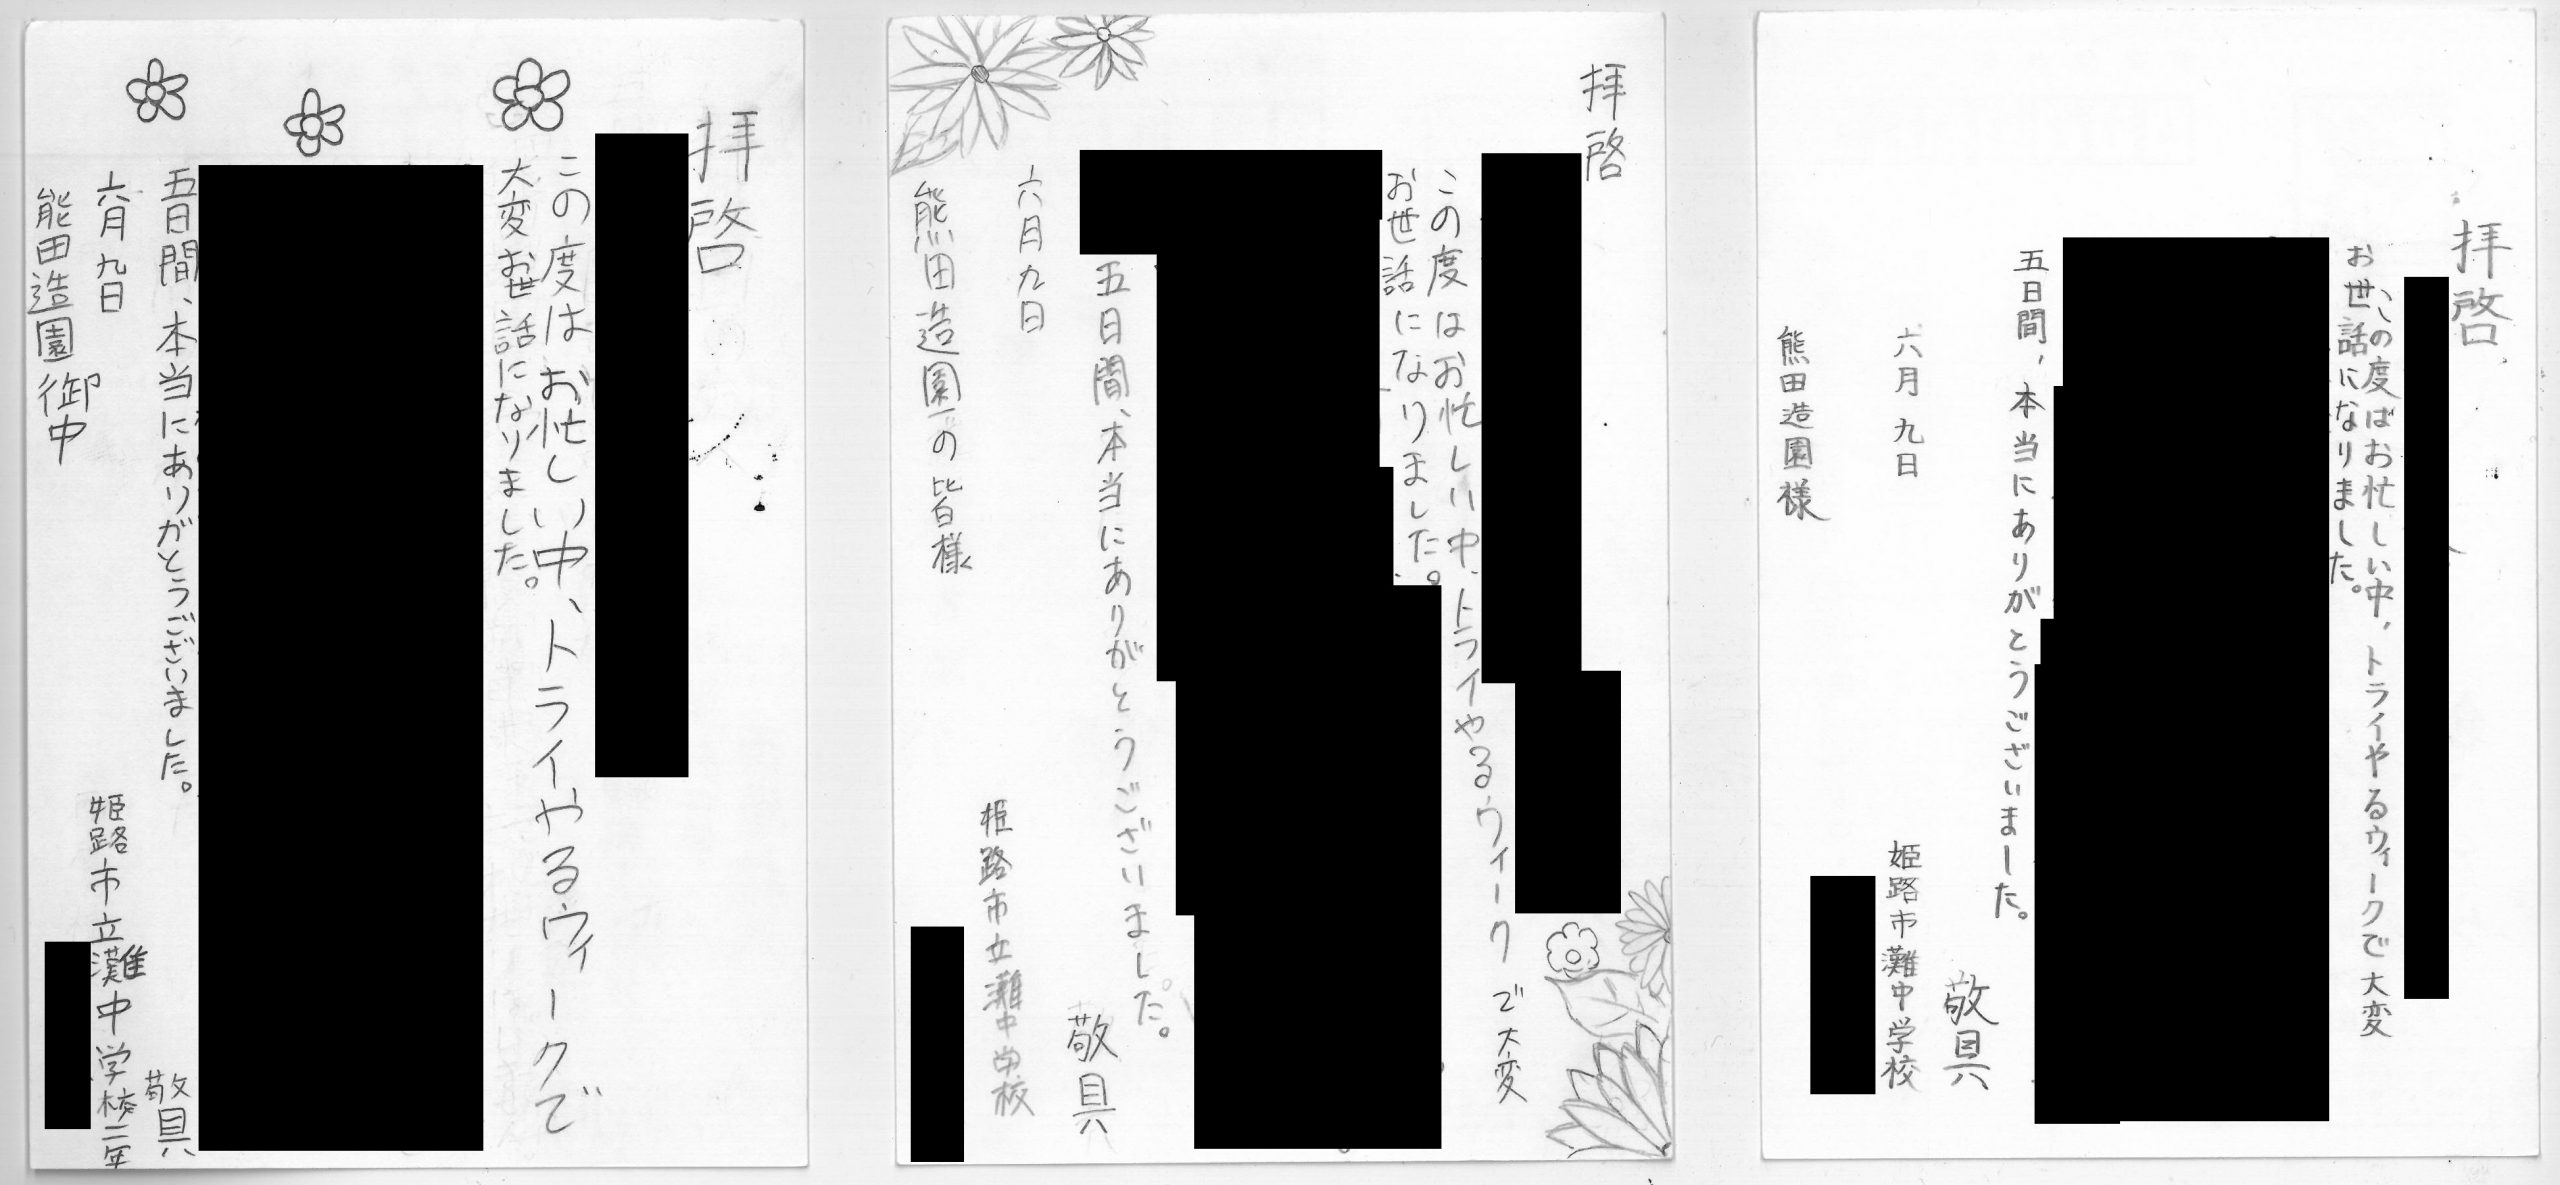 拝啓
この度はお忙しい中、トライやるウィークで
大変お世話になりました。
五日間、本当にありがとうございました。
敬具
六月九日
姫路市立灘中学校二年
能田造園御中
拝啓
この度はお忙しい中、トライやるウィークで大変
お世話になりました。
五日間、本当にありがとうございました。
敬具
六月九日
姫路市立灘中学校
熊田造園の皆様
拝啓
この度はお忙しい中、トライやるウィークで大変
お世話になりました。
五日間、本当にありがとうございました。
敬具
六月九日
姫路市灘中学校
熊田造園様